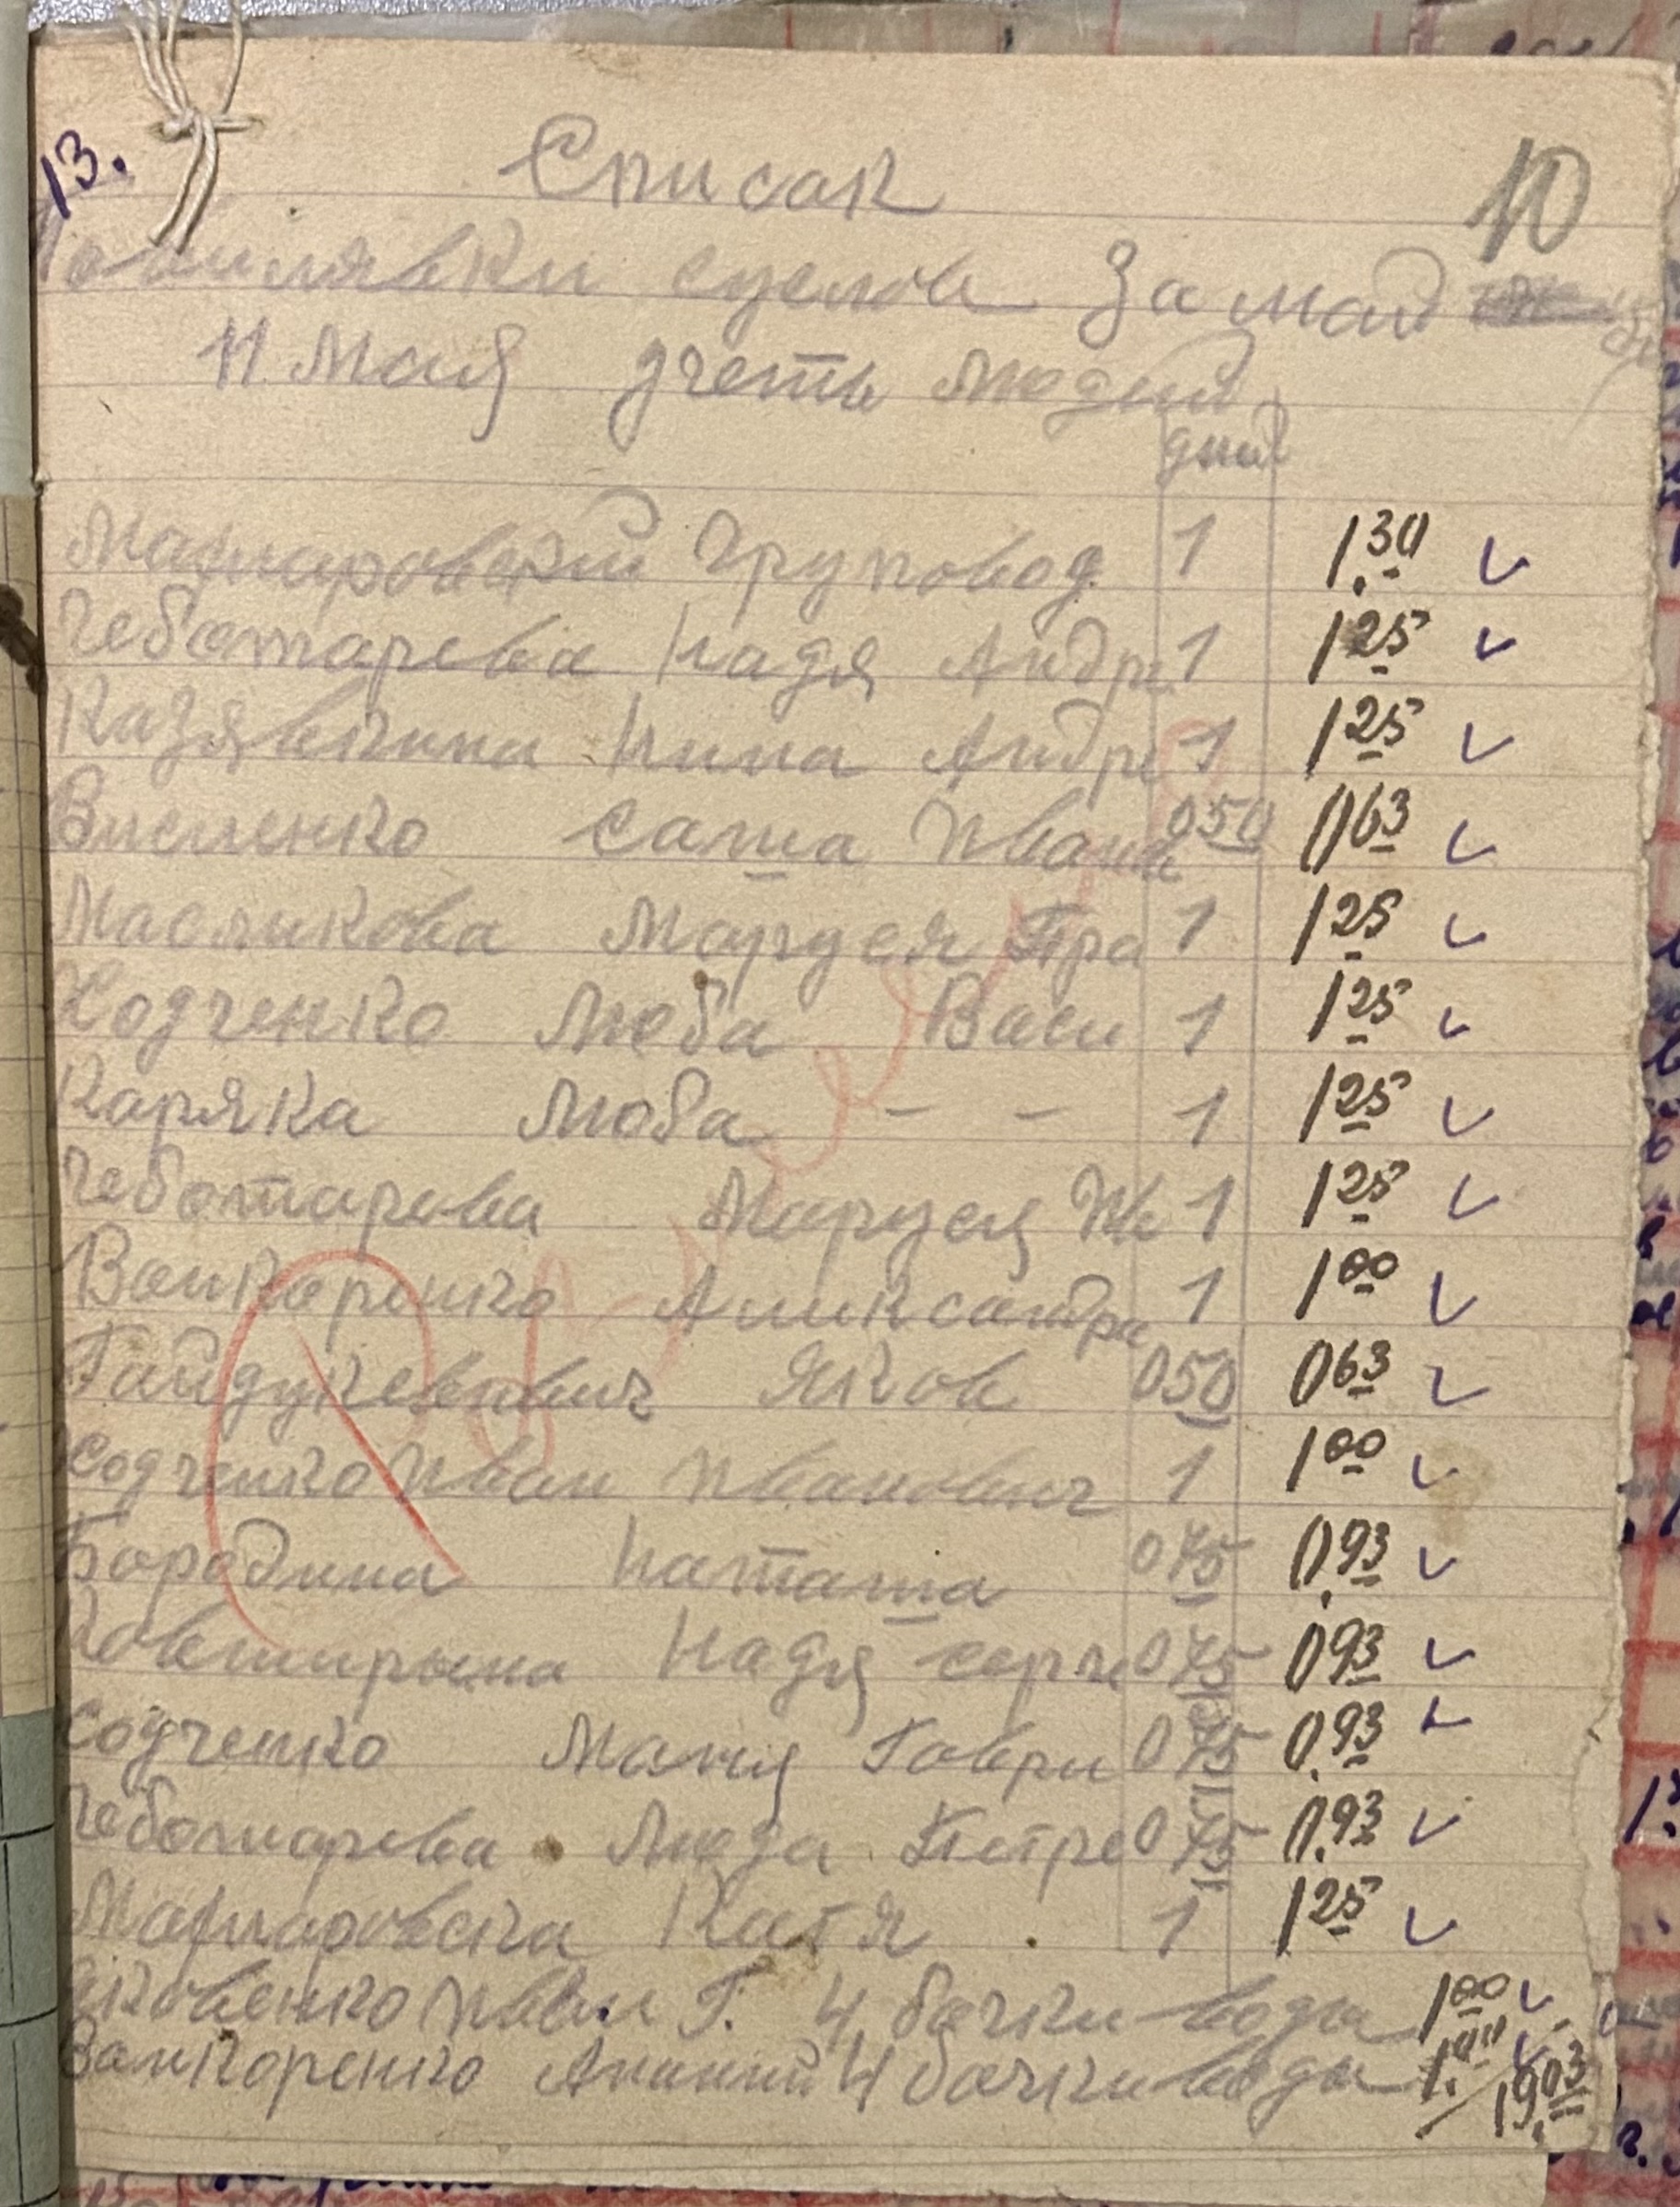 13.
Список
10
за май
11 мая учеть людий
дний
Мажаровский Груповод 1 1.30 ✓
Чеботарева Надя Андре 1 1 25 ✓
Казявкина Нина Андре 1 1 25 ✓
Висленко Саша Ивани 050 063 ✓
Масликова Маруся Пра 1 1 25 ✓
Ходченко Люба Васи 1 1 25 ✓
Каряка Люба – – 1 1 25 ✓
Чеботарева Маруся Ив 1 1 25 ✓
Ванкоренко Аликсандра 1 1 00 ✓
Гайдукевич Яков 050 063 ✓
Содченко Иван Иванович 1 1 00 ✓
Бородина Наташа 075 0.93 ✓
Надя Серге 075 093 ✓
Содченко Маня Гаври 075 0.93 ✓
Чеботарева Люда Петре 075 0.93 ✓
Мажаровска Катя 1 1 25 ✓
Яковенко Иван Г. 4 бочки воды 1 00 ✓
Ванкоренко 4 бочки воды 1.00 ✓
19.03